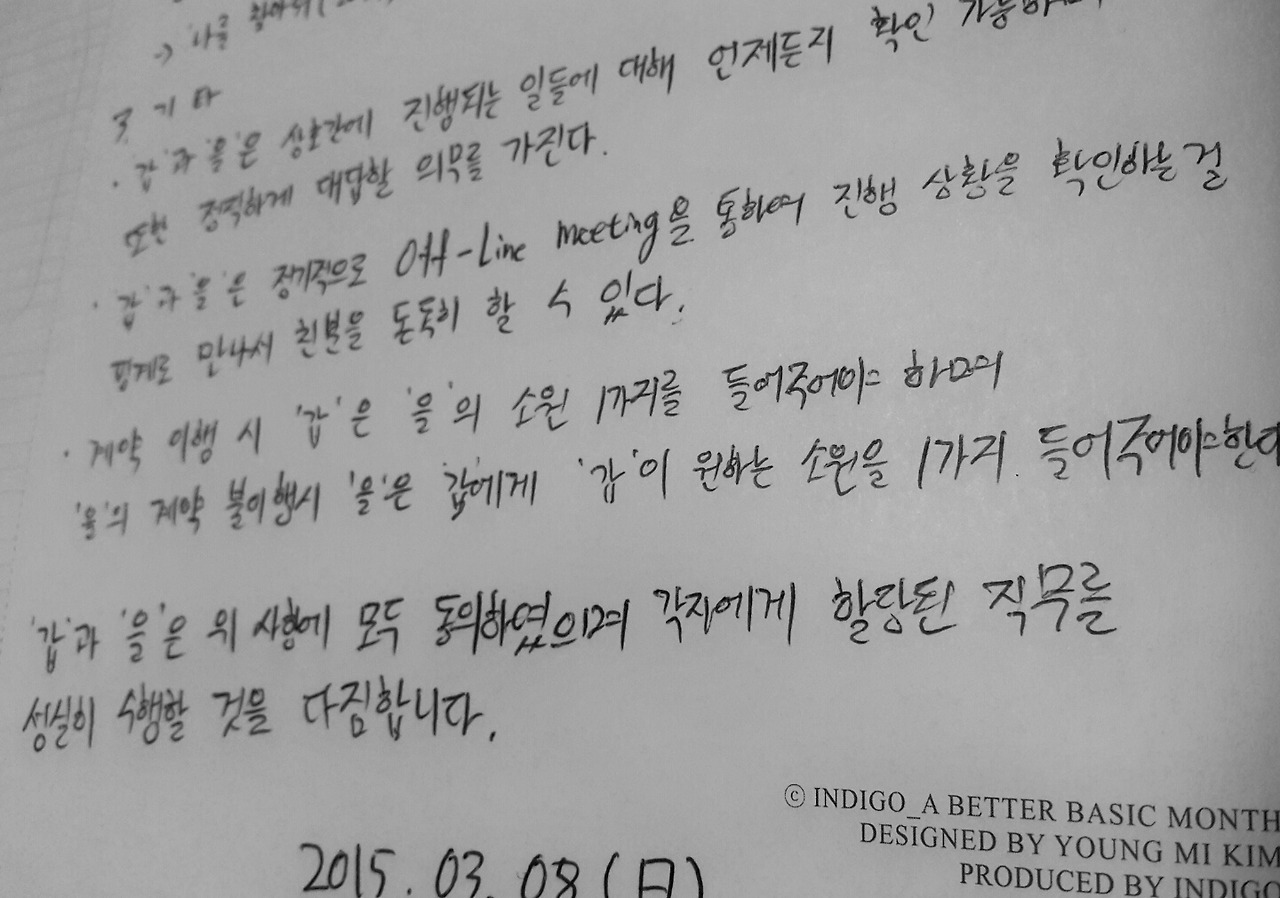 → 나를
3. 기타
· '갑'과 '을'은 상호간에 진행되는 일들에 대해 언제든지 확인 가능하며
또한 정직하게 대답할 의무를 가진다.
· '갑'과 '을'은 정기적으로 Off-Line meeting을 통하여 진행 상황을 확인하는걸
핑계로 만나서 친분을 돈독히 할 수 있다.
· 계약 이행 시 '갑'은 '을'의 소원 1가지를 들어주어야 하며
'을'의 계약 불이행시 '을'은 '갑'에게 '갑'이 원하는 소원을 1가지 들어주어야한다
'갑'과 '을'은 위 사항에 모두 동의하였으며 각자에게 할당된 직무를
성실히 수행할 것을 다짐합니다.
2015.03.08(日)
ⓒ INDIGO_A BETTER BASIC MONTH
DESIGNED BY YOUNG MI KIM
PRODUCED BY INDIGO